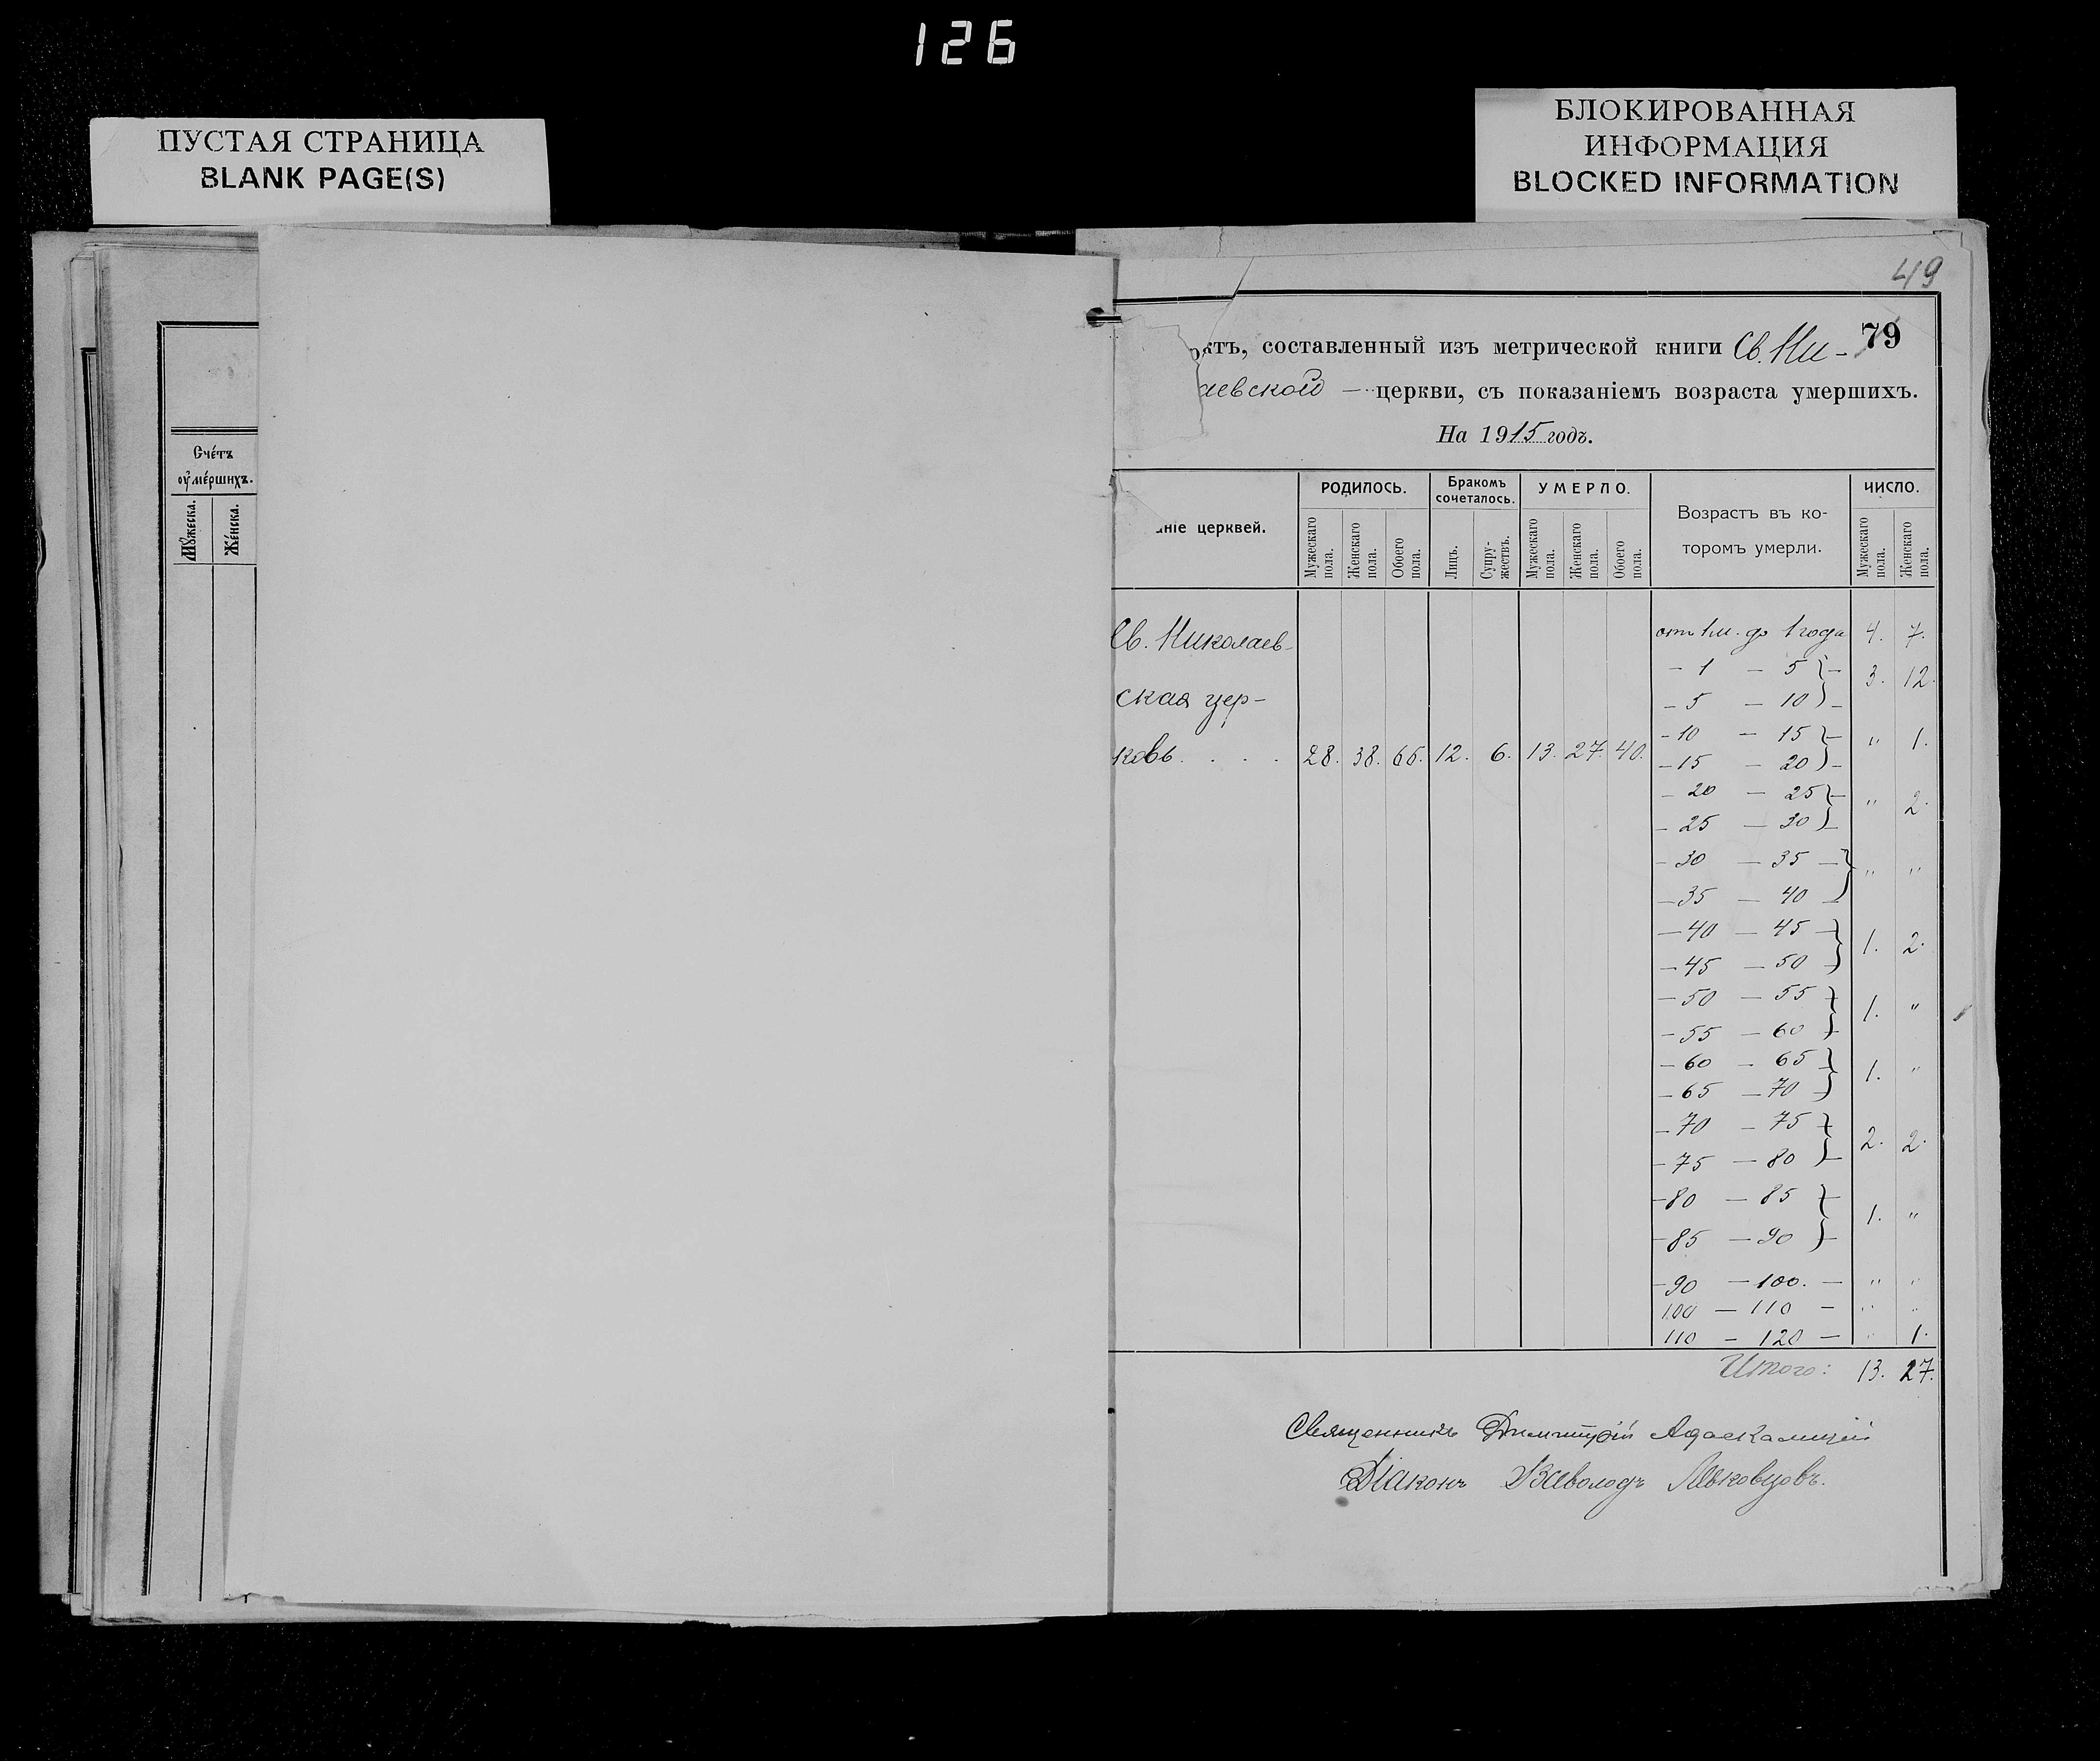 126
ПУСТАЯ СТРАНИЦА
BLANK PAGE(S)
БЛОКИРОВАННАЯ
ИНФОРМАЦИЯ
BLOCKED INFORMATION
Счéтъ
оумéршихъ.
Мужеска.
Жéнска.
49
79
ктъ, составленный изъ метрической книги Св. Ни-
аевской — церкви, съ показаніемъ возраста умершихъ.
На 1915 годъ.
аніе церквей.
РОДИЛОСЬ.
Бракомъ сочеталось.
УМЕРЛО.
Возрастъ въ ко-
торомъ умерли.
ЧИСЛО.
Мужескаго пола. Женскаго пола. Обоего пола. Лицъ. Супру-жествъ. Мужескаго пола. Женскаго пола. Обоего пола. Мужескаго пола. Женскаго пола.
Св. Николаев-
ская цер-
ковь. . . . 28. 38. 66. 12. 6. 13. 27. 40.
отъ 1 м. до 1 года 4. 7.
— 1 — 5 } —
— 5 — 10 } — 3. 12.
— 10 — 15 } —
— 15 — 20 } — " 1.
— 20 — 25 } —
— 25 — 30 } — " 2.
— 30 — 35 — }
— 35 — 40 — } " "
— 40 — 45 — }
— 45 — 50 — } 1. 2.
— 50 — 55 }
— 55 — 60 } 1. "
— 60 — 65 }
— 65 — 70 } 1. "
— 70 — 75 }
— 75 — 80 } — 2. 2.
— 80 — 85 } —
— 85 — 90 } — 1. "
— 90 — 100. — " "
100 — 110 — " "
110 — 120 — " 1.
Итого: 13. 27.
Священникъ Димитрій
Діаконъ Всеволодъ